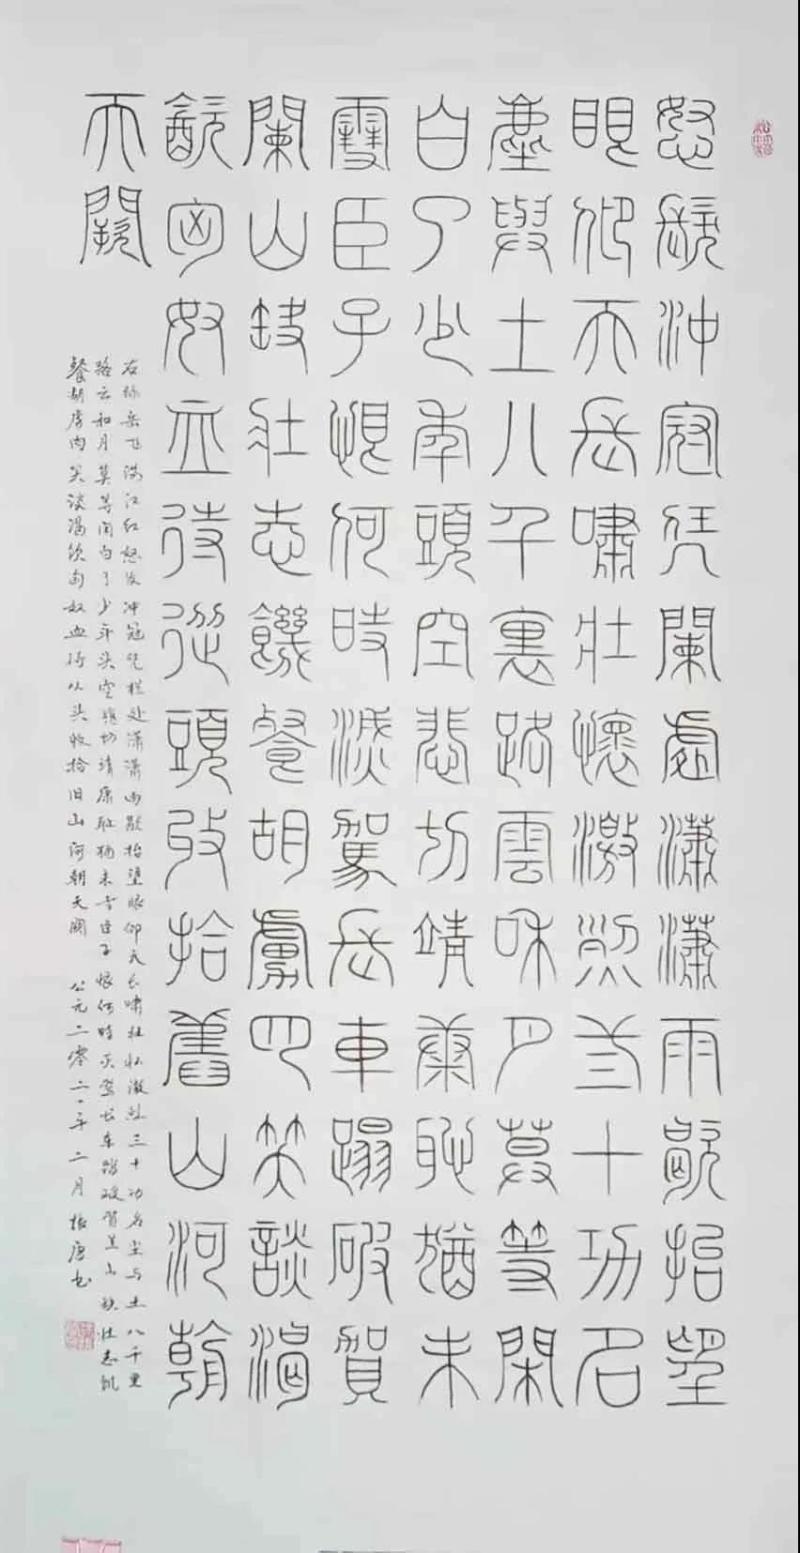 怒髮沖冠凭闌處瀟瀟雨歇抬望
眼仰天長嘯壯懷激烈三十功名
塵與土八千裏路雲和月莫等閑
白了少年頭空悲切靖康恥猶未
雪臣子恨何時滅駕長車蹋破賀
闌山缺壯志饑餐胡虜肉笑談渴
飲匈奴血待從頭收拾舊山河朝
天闕
右录岳飞满江红怒发冲冠凭栏处潇潇雨歇抬望眼仰天长啸壮怀激烈三十功名尘与土八千里
路云和月莫等闲白了少年头空悲切靖康耻犹未雪臣子恨何时灭驾长车踏破贺兰山缺壮志饥
餐胡虏肉笑谈渴饮匈奴血待从头收拾旧山河朝天阙 公元二零二一年二月 振唐书